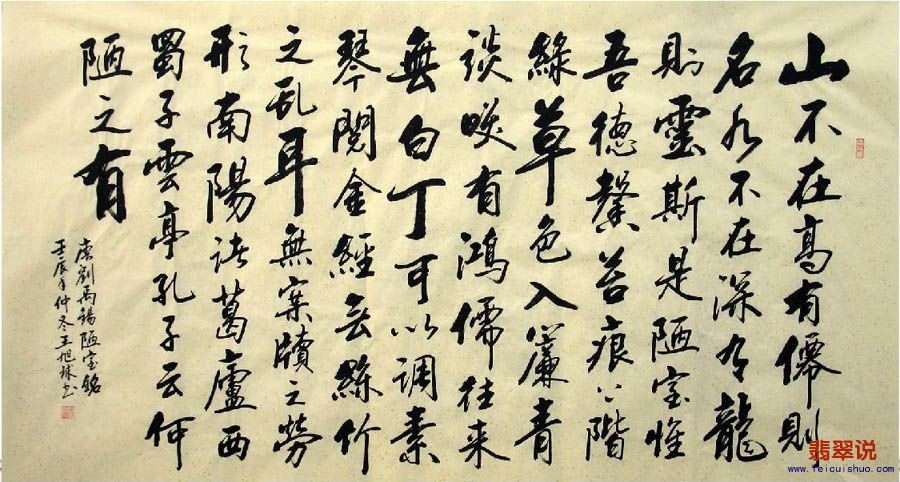 山不在高有僊則
名水不在深有龍
則靈斯是陋室惟
吾德馨苔痕上階
綠草色入簾青
談咲有鴻儒往来
無白丁可以調素
琴閱金經无絲竹
之乱耳無案牘之勞
形南陽諸葛廬西
蜀子雲亭孔子云何
陋之有
唐劉禹錫陋室銘
壬辰年仲冬王旭书
翡翠说
www.feicuishuo.com